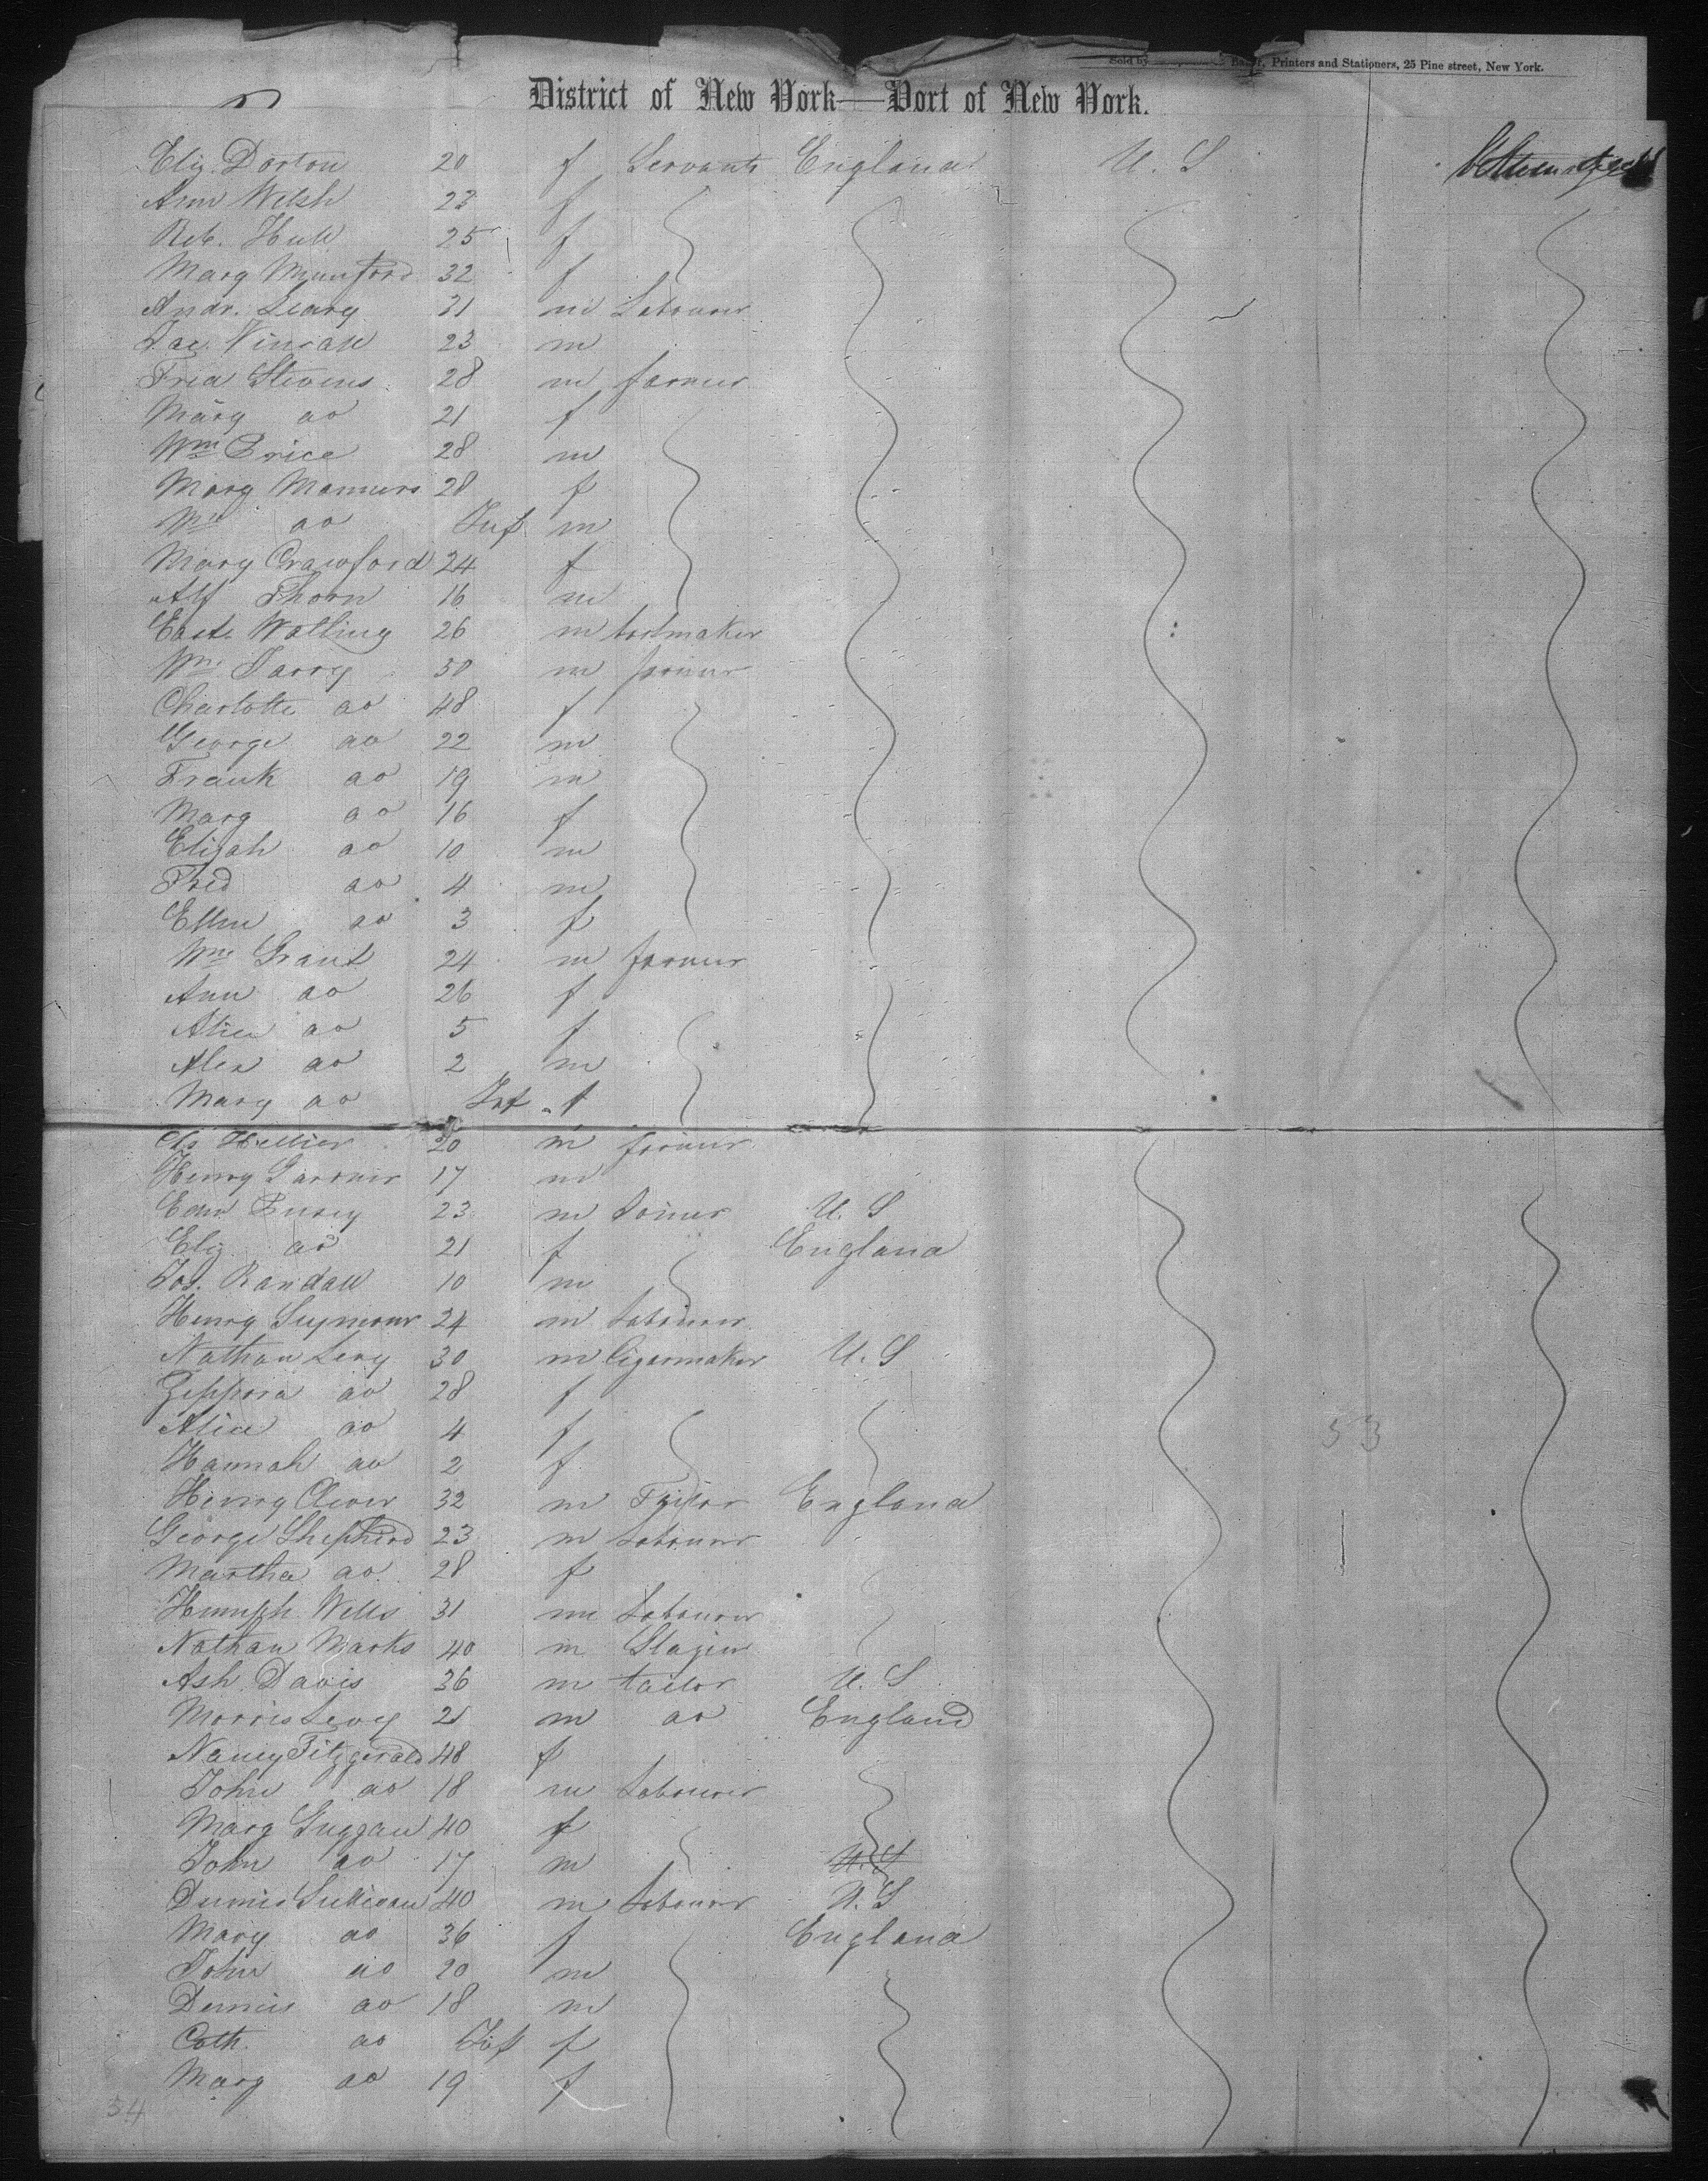 Sold by Baker, Printers and Stationers, 25 Pine street, New York.
District of New York—Port of New York.
Eliz. Dorton 20 f Servants England U. S
Ann Welsh 23 f
Reb. Hull 25 f
Mary Munford 32 f
Andr. Leary 31 m Labourer
Jac. 23 m
Fred Stevens 28 m farmer
Mary do 21 f
Wm Price 28 m
Mary Manners 28 f
Wm do Inf m
Mary Crawford 24 f
Alf Thorn 16 m
Walling 26 m bootmaker
Wm Parry 50 m farmer
Charlotte do 48 f
George do 22 m
Frank do 19 m
Mary do 16 f
Elijah do 10 m
Fred do 4 m
Ellen do 3 f
Wm Grant 24 m farmer
Ann do 26 f
Alice do 5 f
Alex do 2 m
Mary do Inf f
Chs Hellier 20 m farmer
Henry Gardner 17 m
Edw 23 m U. S
Eliz do 21 f England
Jos. Randall 10 m
Henry Seymour 24 m Labourer
Nathan Levy 30 m Cigarmaker U. S
Zippora do 28 f
Alice do 4 f
Hannah do 2 f
Henry Clever 32 m Tailor England
George Shepherd 23 m Labourer
Martha do 28 f
Humph. Wells 31 m Labourer
Nathan Marks 40 m Glazier
Ash. Davis 36 m tailor U. S
Morris Levy 21 m do England
Nancy Fitzgerald 48 f
John do 18 m Labourer
Mary 40 f
John do 17 m U. S
Dennis Sullivan 40 m Labourer U. S
Mary do 36 f England
John do 20 m
Dennis do 18 m
Cath. do Inf f
Mary do 19 f
53
54